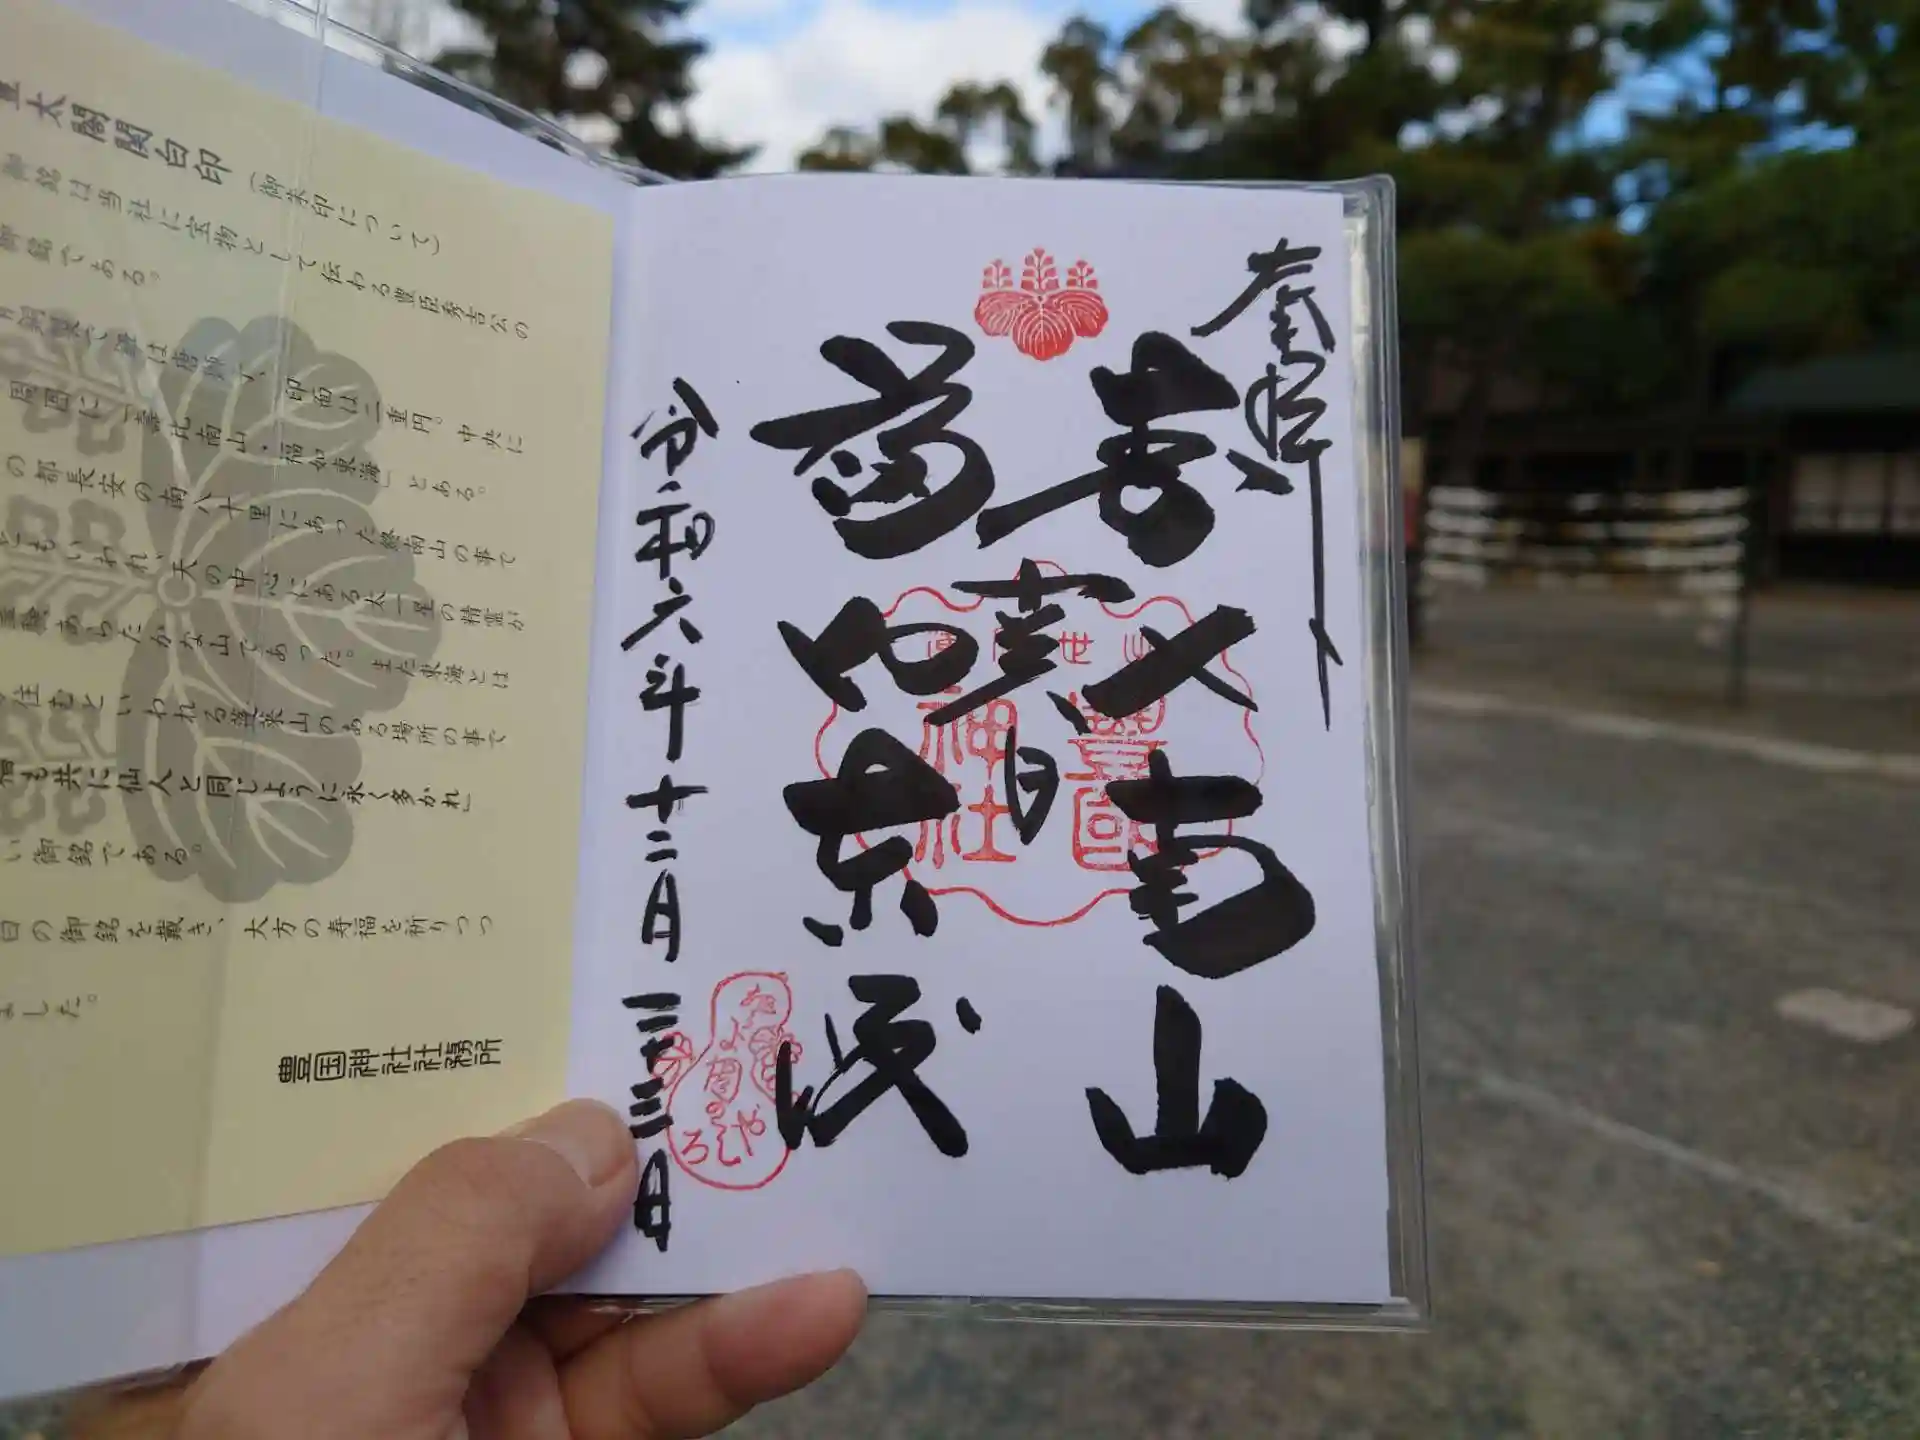 太閤関白印(御朱印について)
御銘は当社に宝物として伝わる豊臣秀吉公の
御銘である。
印面は二重円。中央に
周囲に「壽比南山・福如東海」とある。
の都長安の南八十里にあった終南山の事で
ともいわれ、天の中心にある太一星の精霊が
霊験あらたかな山であった。また東海とは
住むといわれる蓬莱山のある場所の事で
福も共に仙人と同じように永く多かれ」
い御銘である。
白の御銘を戴き、大方の寿福を祈りつつ
ました。
豊国神社社務所
奉拝
壽比南山
白
福如東海
豊國
神社
令和六年十二月二十三日